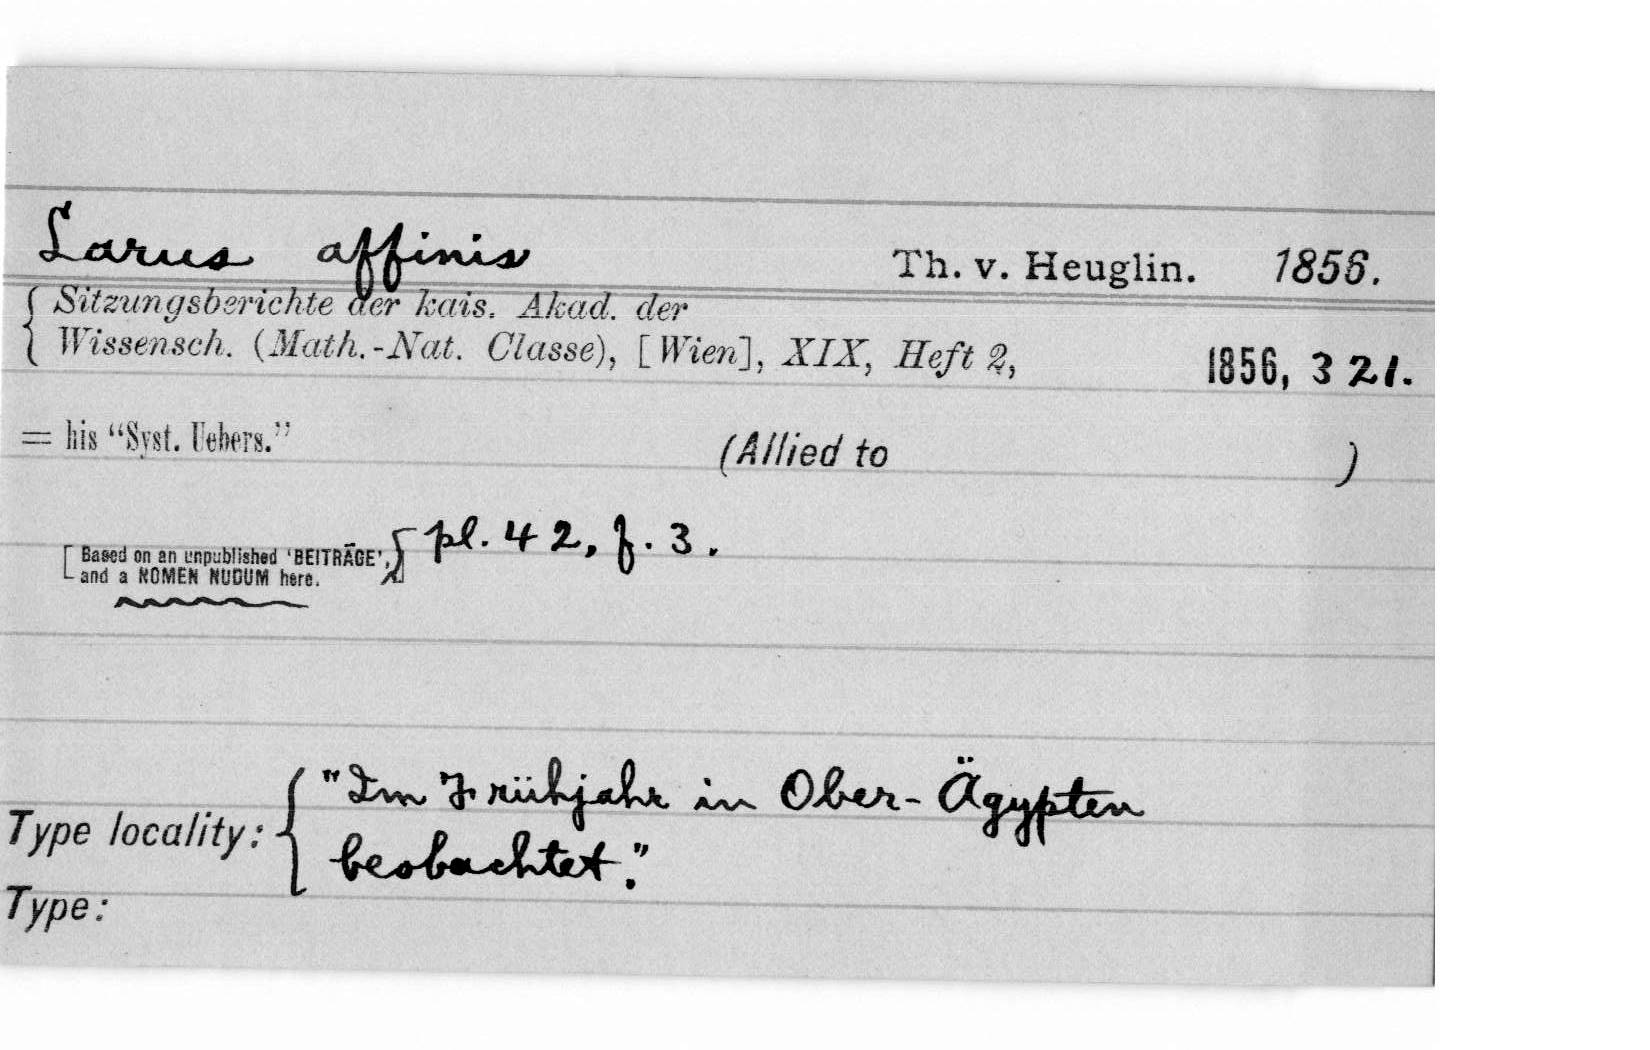 Larus affinis Th. v. Heuglin. 1856.
Sitzungsberichte der kais. Akad. der
Wissensch. (Math.-Nat. Classe), [Wien], XIX, Heft 2, 1856, 321.
= his “Syst. Uebers.” (Allied to )
[Based on an unpublished ‘BEITRÄGE’, pl. 42, f. 3.
and a NOMEN NUDUM here.]
Type locality: "Im Frühjahr in Ober-Ägypten
beobachtet."
Type: